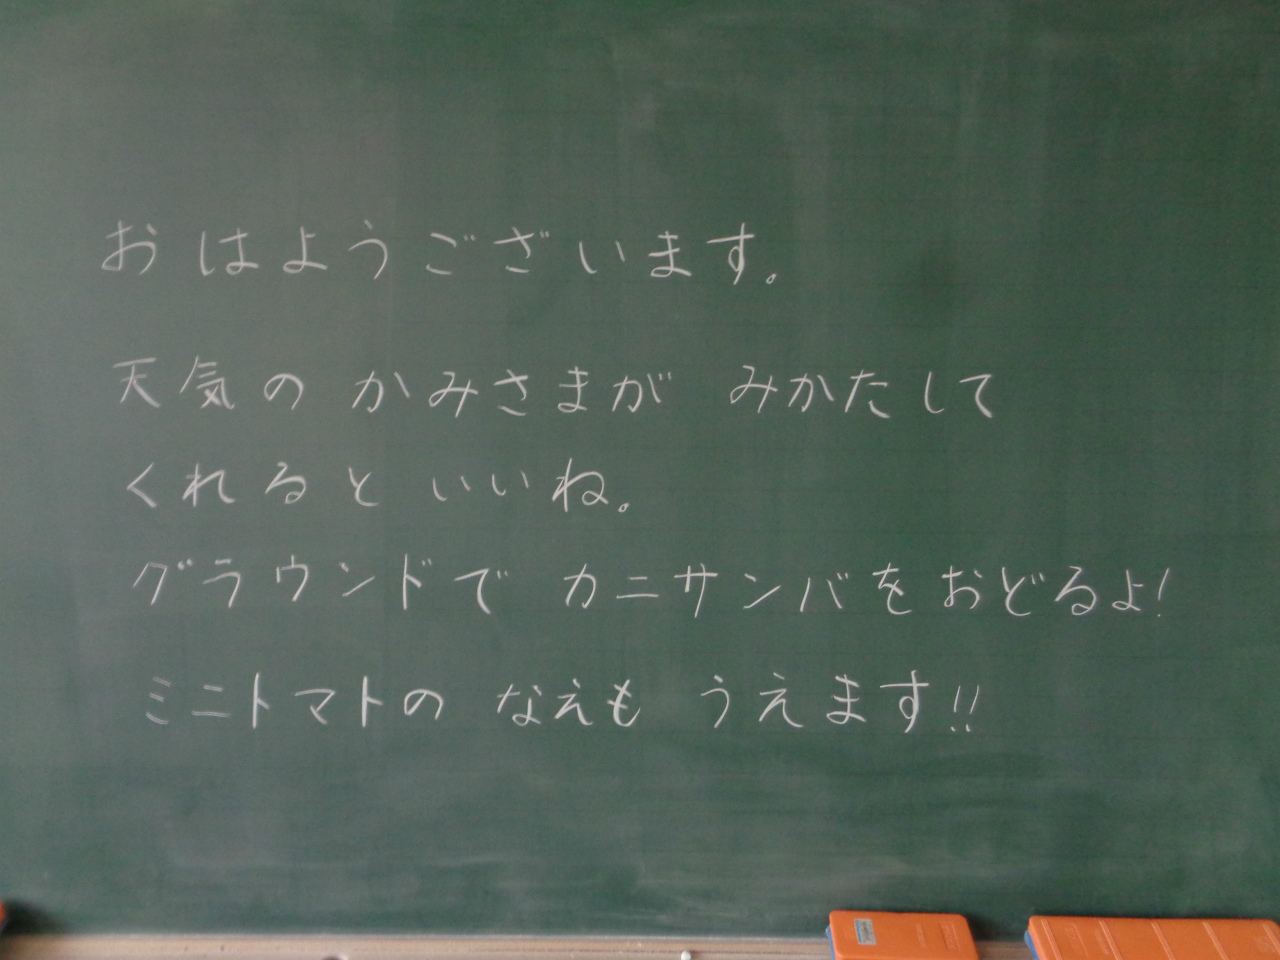 おはようございます。
天気の かみさまが みかたして
くれると いいね。
グラウンドで カニサンバを おどるよ!
ミニトマトの なえも うえます!!